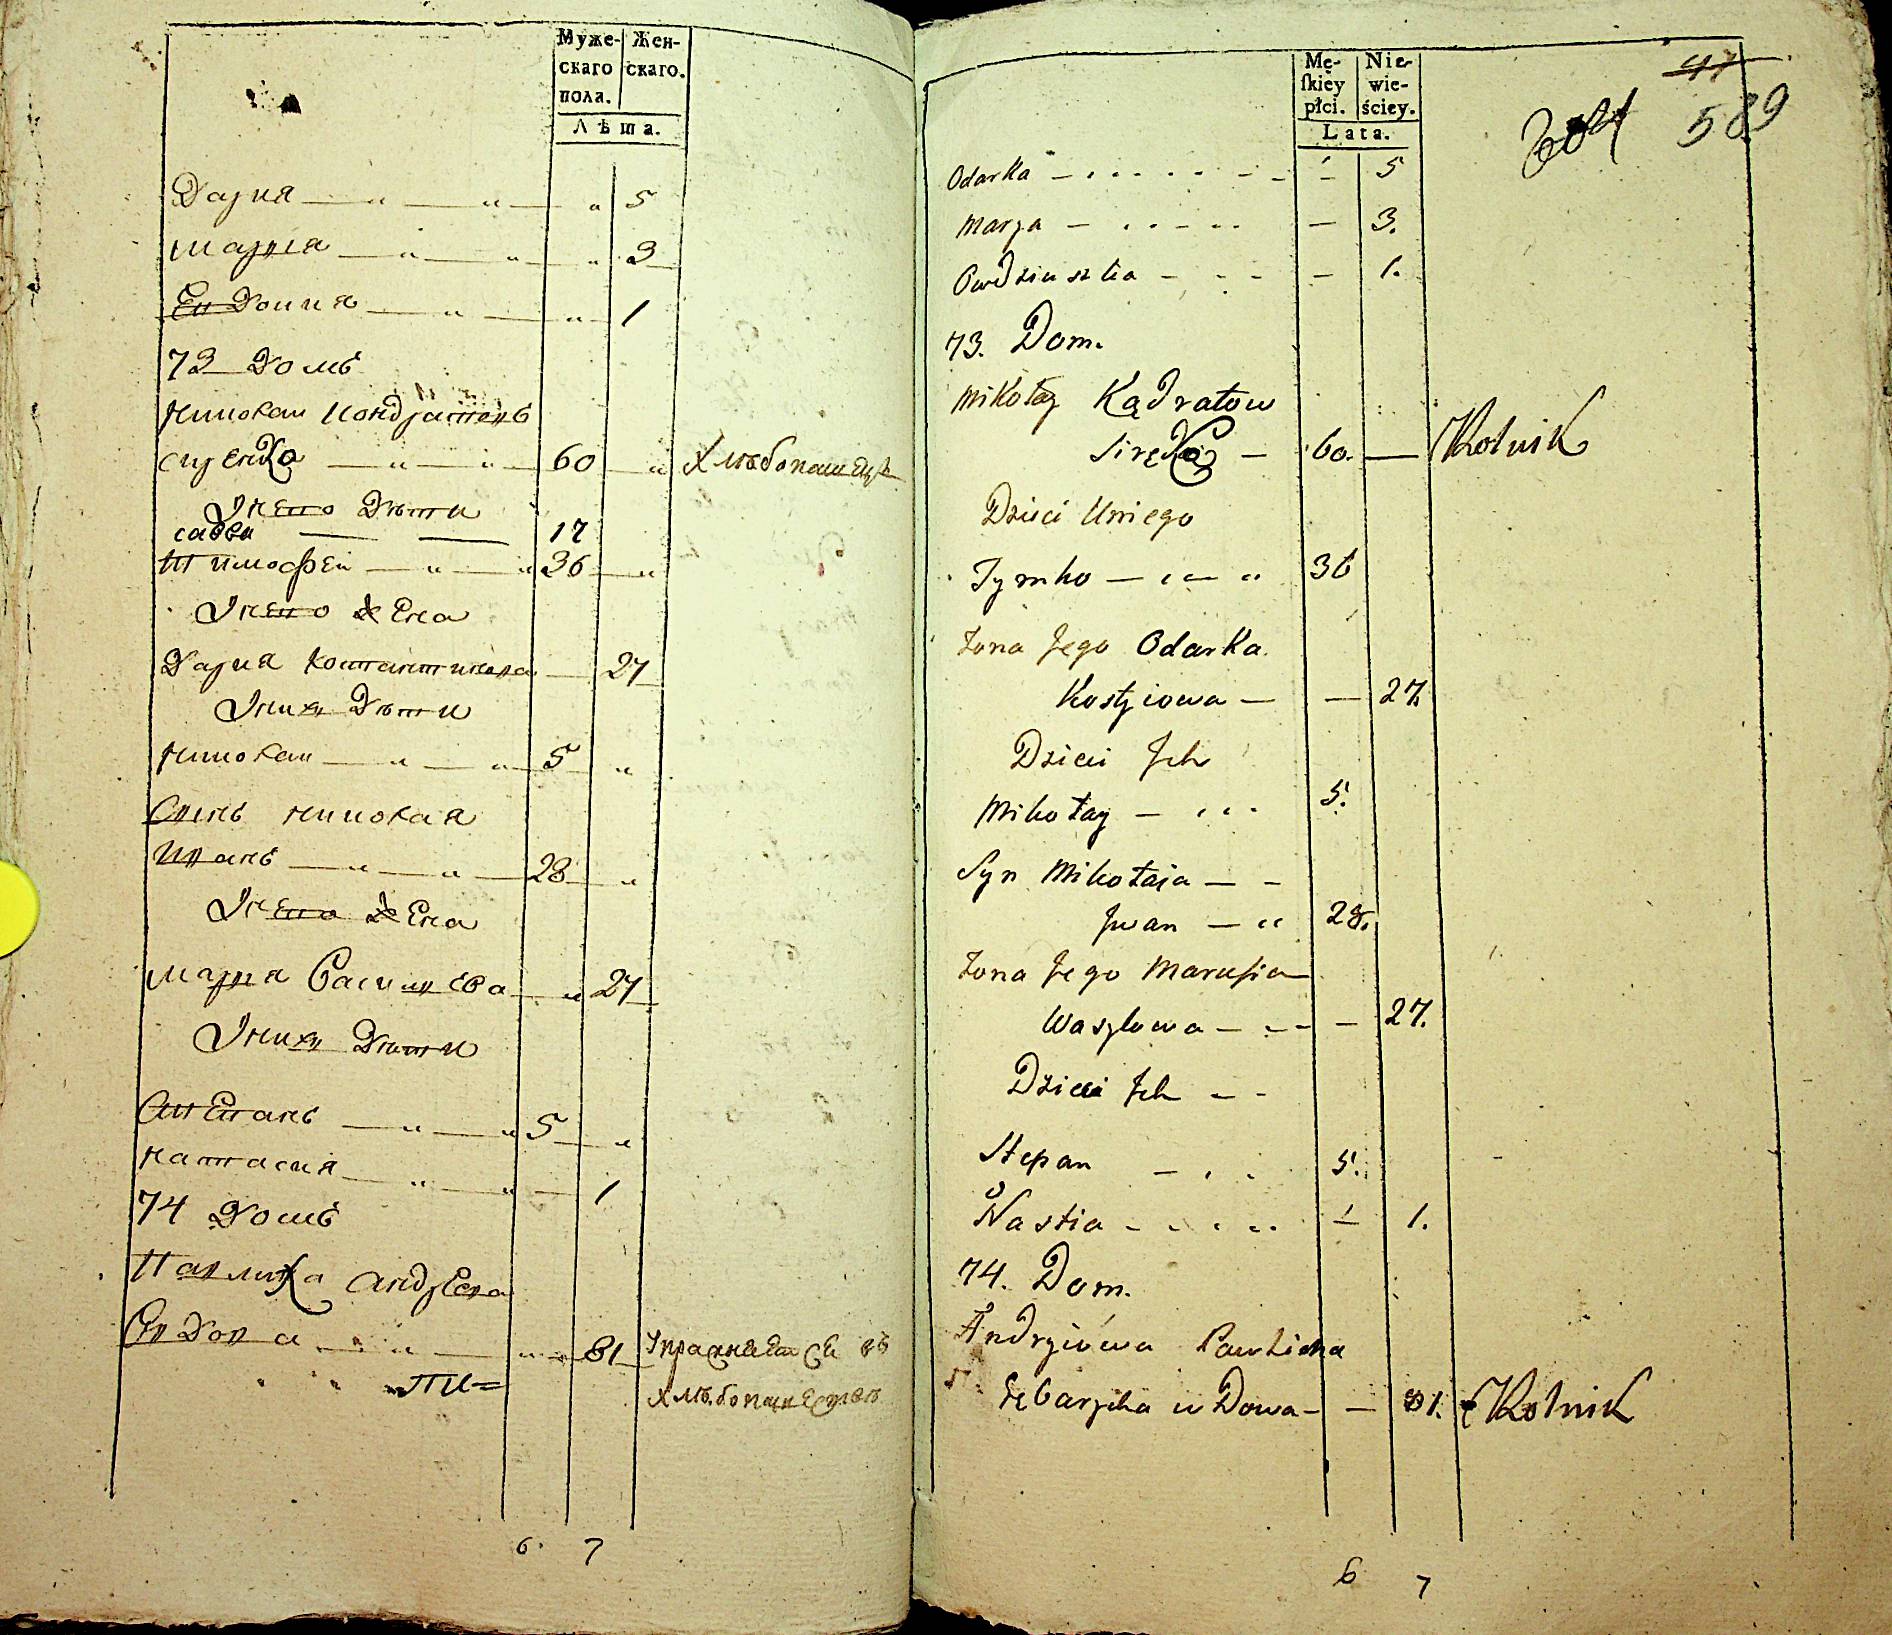 Муже-
скаго
пола.
Жен-
скаго.
Лѣта.
Дария 5
Мария 3
Евдокия 1
73 Домъ
Николаи Кондратовъ
Сиренко 60 Хлѣбопашецъ
У него Дѣти
Савки 17
Тимофеи 36
У него жена
Дария Костантинова 27
У них Дѣти
Николаи 5
Сынъ Николая
Иванъ 28
У него жена
Мария Василева 27
У них Дѣти
Степанъ 5
Настасия 1
74 Домъ
Павлиха Андреева
вдова 81 Упражняется въ
хлѣбопашествѣ
6 7
Mę-
ſkiey
płci.
Nie-
wie-
ściey.
Lata.
47
589
Odarka 5
Marya 3.
73. Dom.
Mikołay Kądratow
Siręko 60. Rolnik
Dzieci U niego
Tymko 36
Żona Jego Odarka
Kostyiowa 27.
Dzieci Jch
Mikołay 5.
Syn Mikołaia
Jwan 28.
Żona Jego Marusia
Wasylowa 27.
Dzieci Jch
Stepan 5.
Nastia 1.
74. Dom.
Andryiowa Pawlicha
wDowa 81. Rolnik
6 7